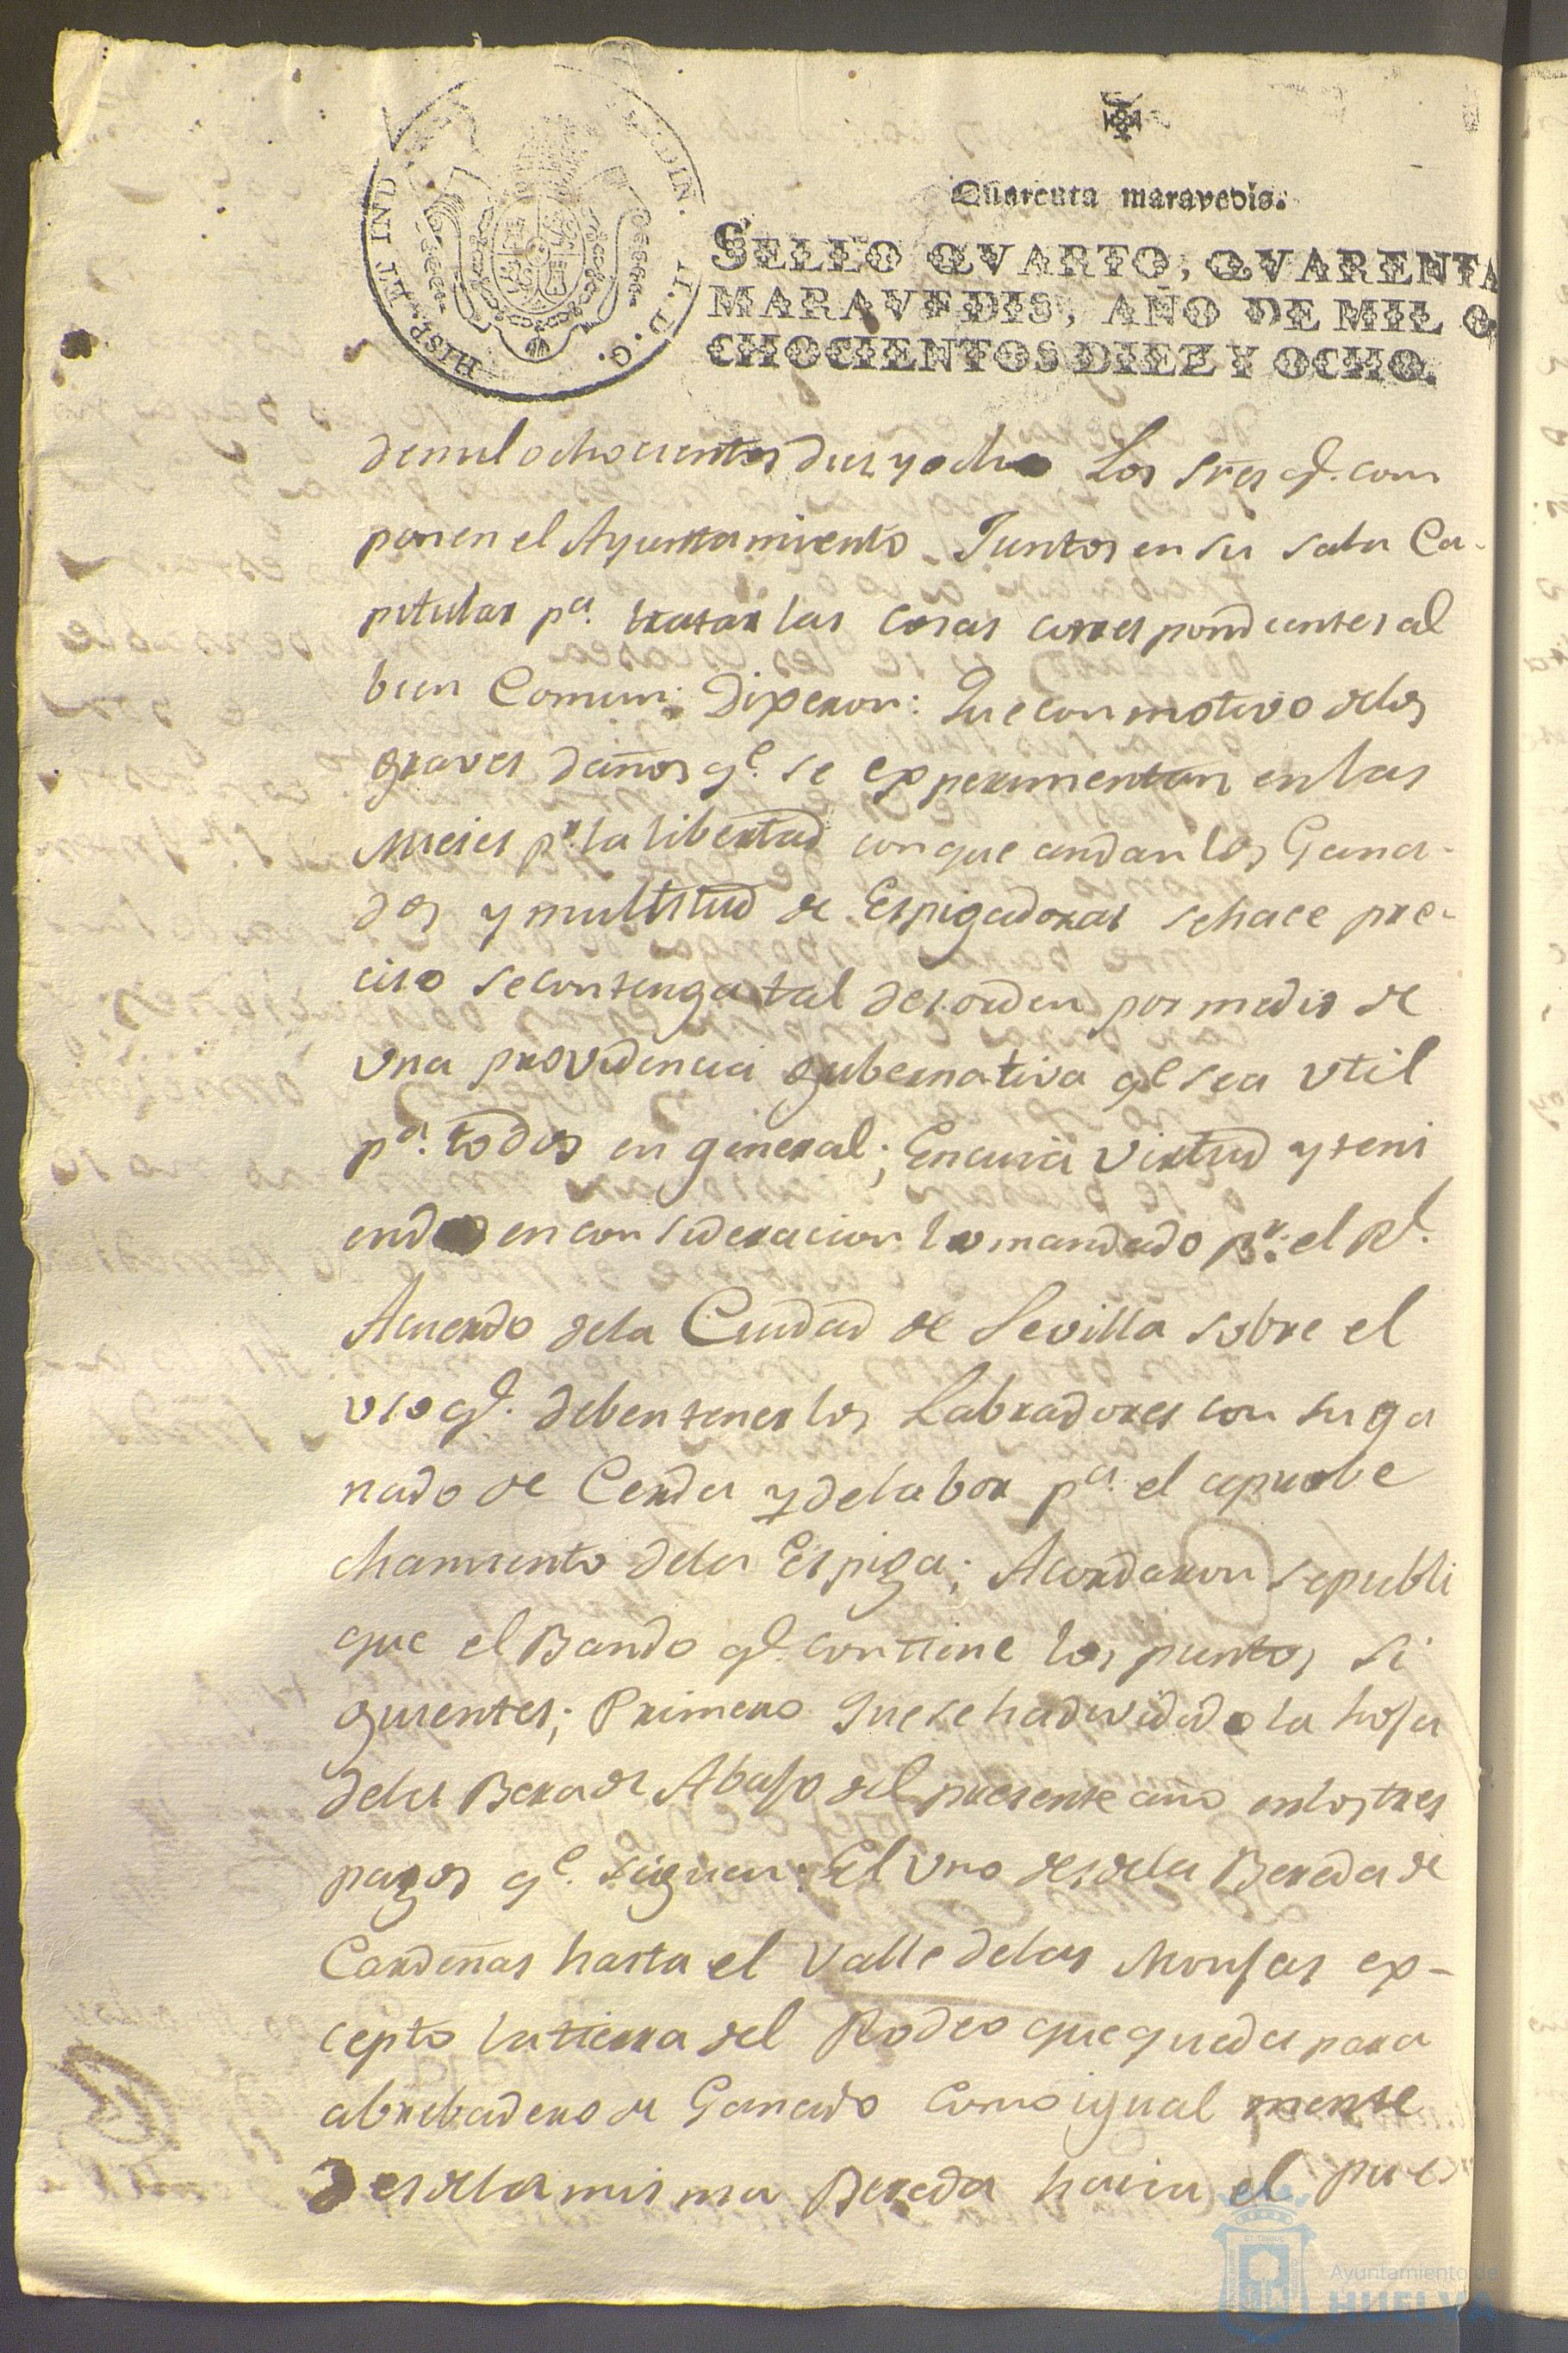 HISP. ET IND
VII. D. G.
Quarenta maravedis.
SELLO QVARTO, QVARENTA
MARAVEDIS, AÑO DE MIL O
CHOCIENTOS DIEZ Y OCHO.
de mil ochocientos diez y ocho Los Sres q.e com
ponen el Ayuntamiento Juntos en su sala Ca-
pitular p.a tratar las cosas correspondientes al
bien Comun: Dixeron: Que con motivo de los
graves daños q.e se experimentan en las
Mieses p.r la libertad con que andan los Gana-
dos y multitud de Espigadoras se hace pre-
ciso se contenga tal desorden por medio de
una providencia gubernativa q.e sea util
p.a todos en general; En cuia virtud y teni
endo en consideracion lo mandado p.r el R.l
Acuerdo de la Ciudad de Sevilla sobre el
uso q.e deben tener los Labradores con su ga
nado de Cerda y de labor p.a el aprobe
chamiento de la Espiga; Acordaron se publi
que el Bando q.e contiene los puntos si
guientes; Primero Que se ha dividido la hoja
de la Bera de Abajo del presente año en los tres
pagos q.e siguen: El Uno desde la Bereda de
Cardeñas hasta el Valle de las Monjas ex-
cepto la tierra del Rodeo que queda para
abrebadero de Ganado como igual mente
desde la misma Bereda hacia el pue
Ayuntamiento de
HUELVA